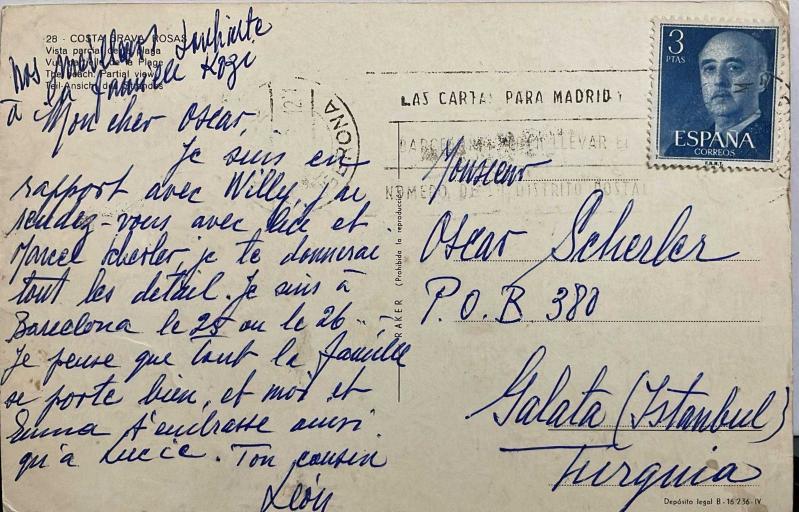 28 - COSTA BRAVA ROSAS
Vista parcial de la Playa
Vue partielle de la Plage
The beach. Partial view
Teil-Ansicht des Strandes
Nos meilleurs
à la famille Kozi
Mon cher Oscar,
Je suis en
rapport avec Willy, j'ai
rendez-vous avec lui et
Marcel Scherler, je te donnerai
tout les détail. Je suis à
Barcelona le 25 ou le 26...
Je pense que tout la famille
se porte bien, et moi et
Emma t'embrasse ainsi
qu'a Lucie. Ton cousin
León
GERONA
LAS CARTAS PARA MADRID
DEBEN LLEVAR EL
NUMERO DEL DISTRITO POSTAL
3
PTAS
ESPAÑA
CORREOS
F.N.M.T.
Monsieur
Oscar Scherler
P.O.B 380
Galata (Istanbul)
Turquia
RAKER (Prohibida la reproducción)
Depósito legal B - 16.236-IV